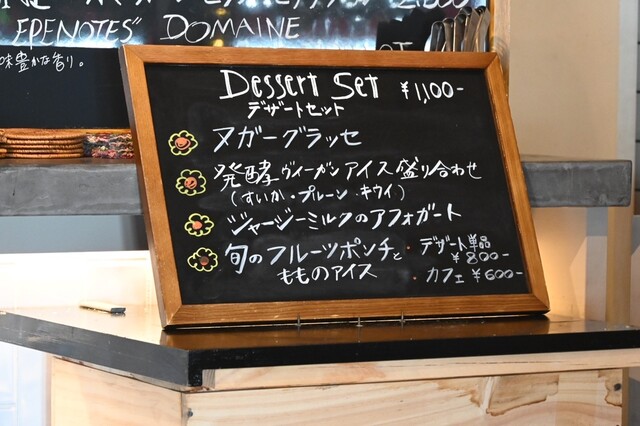 EPENOTES" DOMAINE
味豊かな香り。
Dessert Set ¥1,100-
デザートセット
ヌガーグラッセ
発酵ヴィーガンアイス盛り合わせ
(すいか・プルーン・キウイ)
ジャージーミルクのアフォガート
旬のフルーツポンチと
もものアイス
・デザート単品
¥800-
・カフェ ¥600-